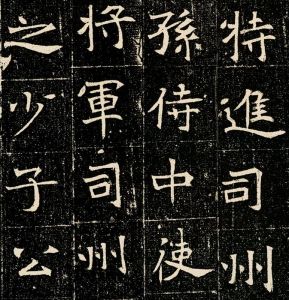 特進司州
孫侍中使
將軍司州
之少子公